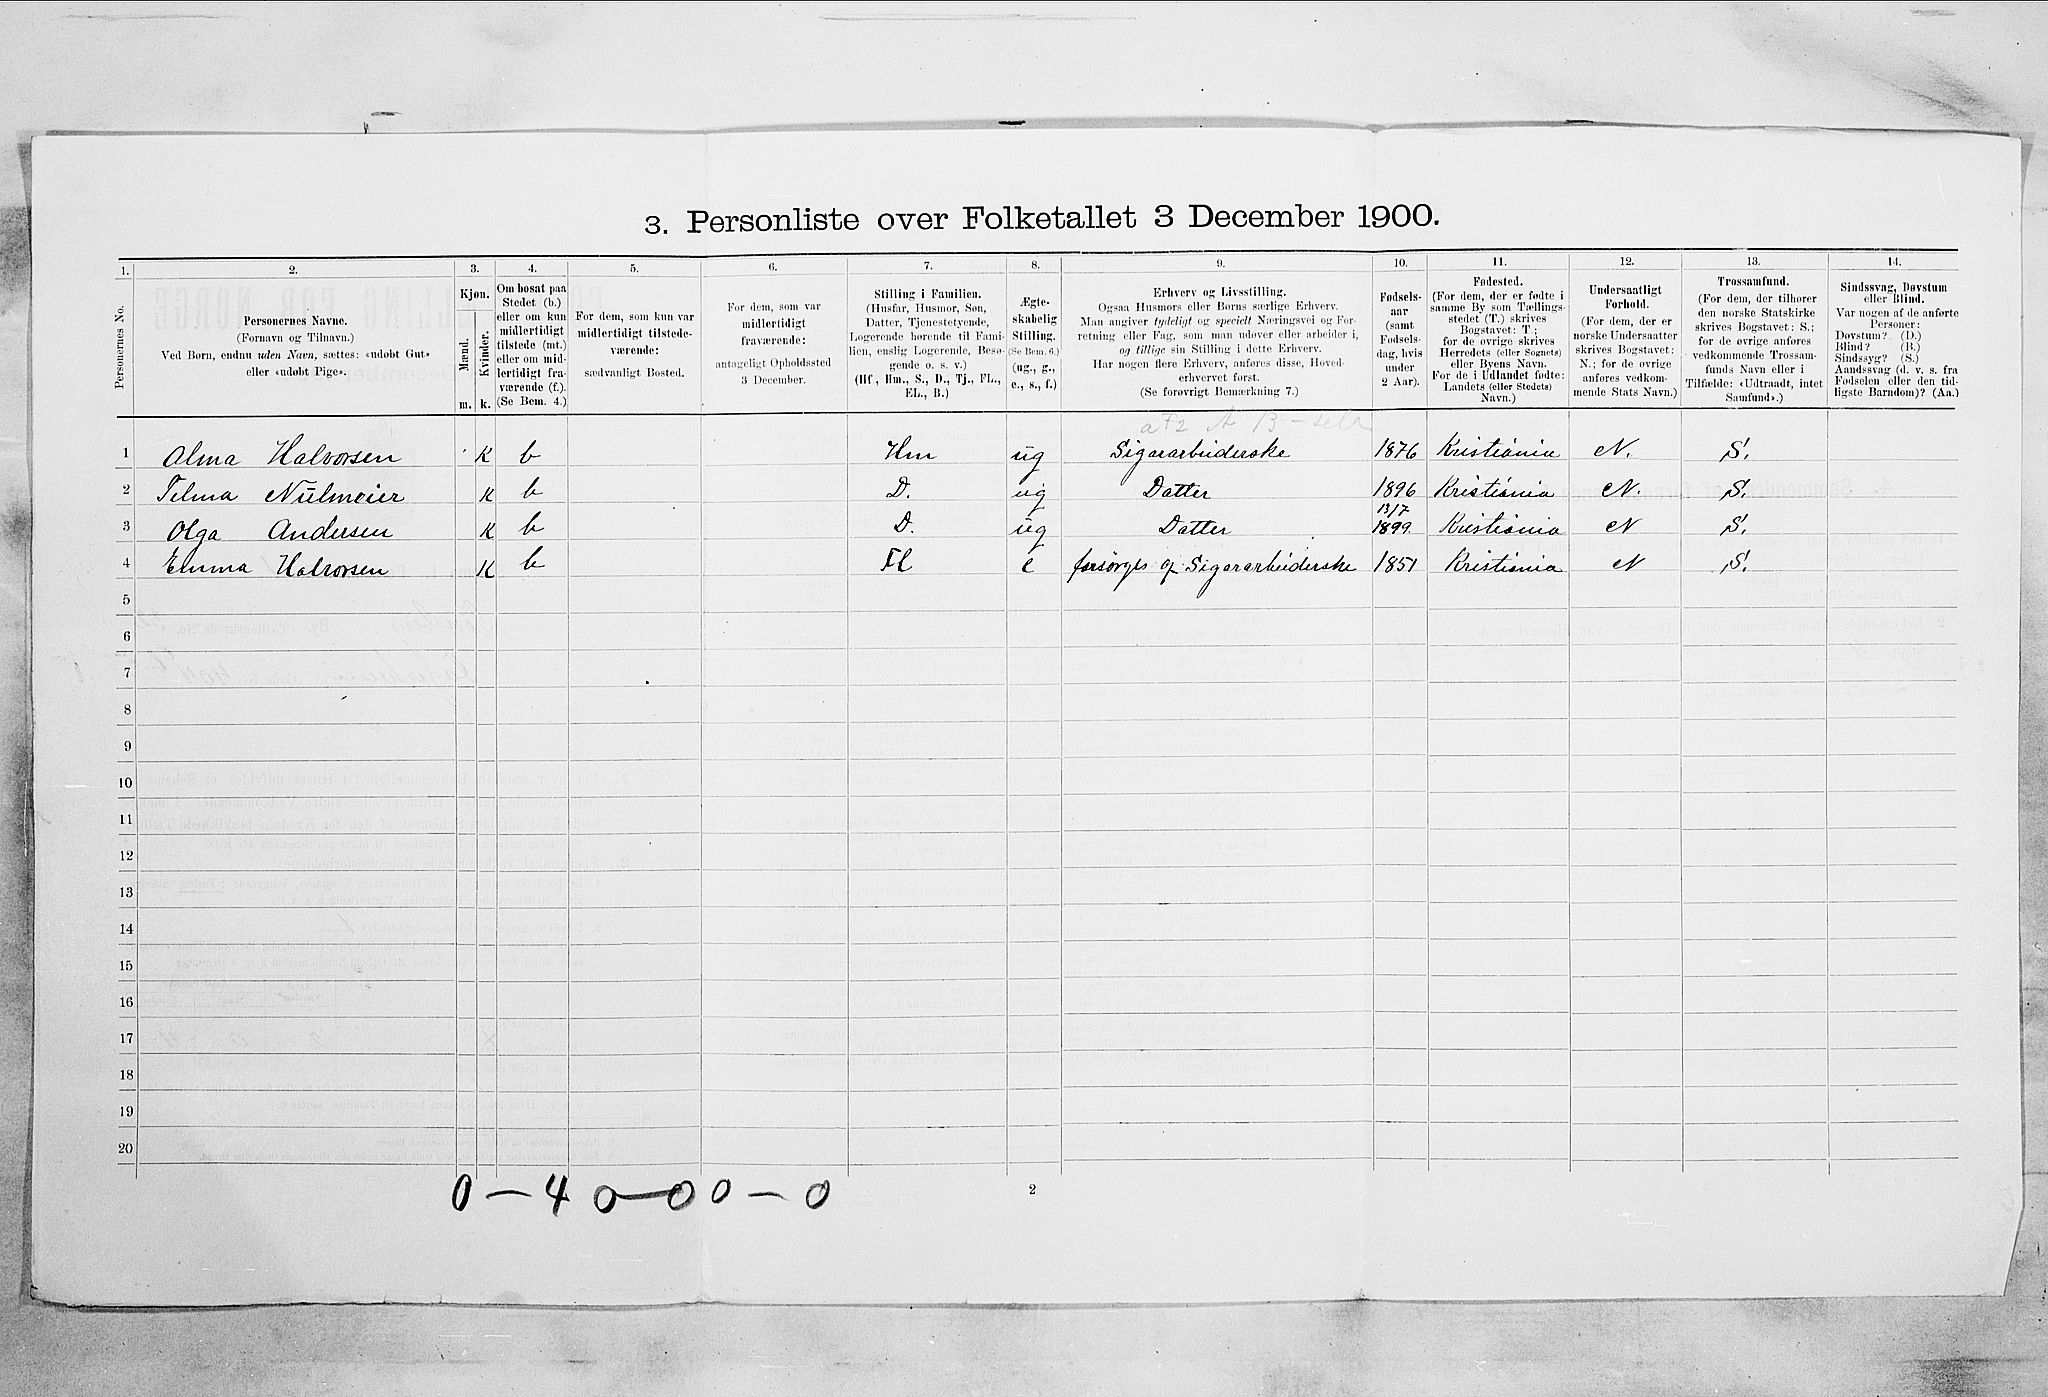 3. Personliste over Folketallet 3 December 1900.
1. 2. 3. 4. 5. 6. 7. 8. 9. 10. 11. 12. 13. 14.
Personernes No.
Personernes Navne.
(Fornavn og Tilnavn.)
Ved Børn, endnu uden Navn, sættes: «udøbt Gut»
eller «udøbt Pige».
Kjøn.
Mænd.
Kvinder.
m. k.
Om bosat paa
Stedet (b.)
eller om kun
midlertidigt
tilstede (mt.)
eller om mid-
lertidigt fra-
værende (f.).
(Se Bem. 4.)
For dem, som kun var
midlertidigt tilstede-
værende:
sædvanligt Bosted.
For dem, som var
midlertidigt
fraværende:
antageligt Opholdssted
3 December.
Stilling i Familien.
(Husfar, Husmor, Søn,
Datter, Tjenestetyende,
Logerende hørende til Fami-
lien, enslig Logerende, Besø-
gende o. s. v.)
(Hf., Hm., S., D., Tj., FL.,
EL., B.)
Ægte-
skabelig
Stilling.
(Se Bem. 6.)
(ug., g.,
e., s., f.)
Erhverv og Livsstilling.
Ogsaa Husmors eller Børns særlige Erhverv.
Man angiver tydeligt og specielt Næringsvei og For-
retning eller Fag, som man udøver eller arbeider i,
og tillige sin Stilling i dette Erhverv.
Har nogen flere Erhverv, anføres disse, Hoved-
erhvervet først.
(Se forøvrigt Bemærkning 7.)
Fødsels-
aar
(samt
Fødsels-
dag, hvis
under
2 Aar).
Fødested.
(For dem, der er fødte i
samme By som Tællings-
stedet (T.) skrives
Bogstavet: T.;
for de øvrige skrives
Herredets (eller Sognets)
eller Byens Navn.
For de i Udlandet fødte:
Landets (eller Stedets)
Navn.)
Undersaatligt
Forhold.
(For dem, der er
norske Undersaatter
skrives Bogstavet:
N.; for de øvrige
anføres vedkom-
mende Stats Navn.)
Trossamfund.
(For dem, der tilhører
den norske Statskirke
skrives Bogstavet: S.;
for de øvrige anføres
vedkommende Trossam-
funds Navn eller i
Tilfælde: «Udtraadt, intet
Samfund».)
Sindssvag, Døvstum
eller Blind.
Var nogen af de anførte
Personer:
Døvstum? (D.)
Blind? (B.)
Sindssyg? (S.)
Aandssvag (d. v. s. fra
Fødselen eller den tid-
ligste Barndom)? (Aa.)
1 Alma Halvorsen K b Hm ug Sigararbeiderske 1876 Kristiania N. S.
2 Telma Nulmeier K b D. ug Datter 1896 Kristiania N. S.
13/7
3 Olga Andersen K b D. ug Datter 1899 Kristiania N S.
4 Emma Halvorsen K b Fl e forsørges af Sigararbeiderske 1851 Kristiania N S.
5
6
7
8
9
10
11
12
13
14
15
16
17
18
19
20
0 – 4 0 – 0 0 – 0
2